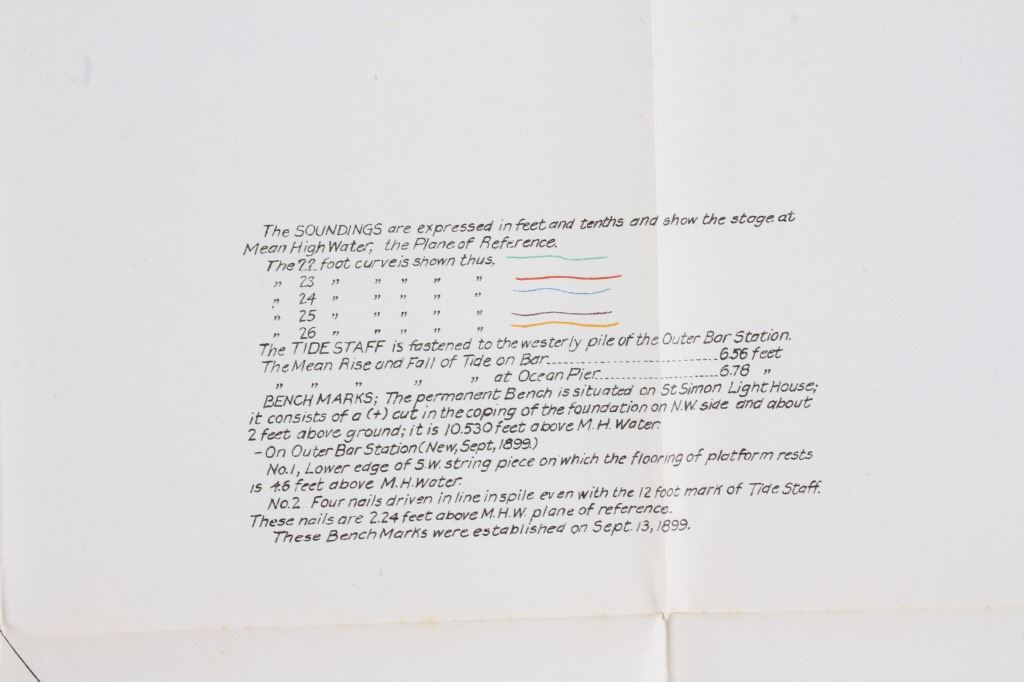 The SOUNDINGS are expressed in feet and tenths and show the stage at
Mean High Water, the Plane of Reference.
The 22 foot curve is shown thus,
" 23 " " " " "
" 24 " " " " "
" 25 " " " " "
" 26 " " " " "
The TIDE STAFF is fastened to the westerly pile of the Outer Bar Station.
The Mean Rise and Fall of Tide on Bar........................6.56 feet
" " " " " at Ocean Pier........................6.78 "
BENCH MARKS; The permanent Bench is situated on St Simon Light House;
it consists of a (+) cut in the coping of the foundation on N.W. side and about
2 feet above ground; it is 10.530 feet above M.H. Water.
- On Outer Bar Station (New, Sept, 1899.)
No.1, Lower edge of S.W. string piece on which the flooring of platform rests
is 4.6 feet above M.H. Water.
No.2 Four nails driven in line in spile even with the 12 foot mark of Tide Staff.
These nails are 2.24 feet above M.H.W. plane of reference.
These Bench Marks were established on Sept. 13, 1899.